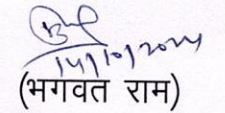 14/10/2024
(भगवत राम)